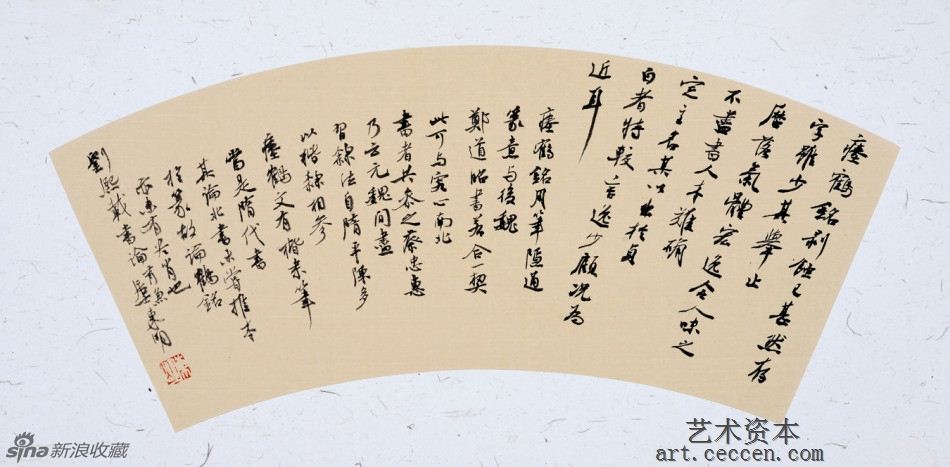 瘞鶴銘剥蝕已甚然存
字雖少其舉止
歷落氣體宏逸令人味之
不盡書人本難確
定主名其以出於貞
白者特較言逸少顧況為
近耳
瘞鶴銘用筆隱通
篆意与後魏
鄭道昭書若合一契
此可与究心南北
書者共參之蔡忠惠
乃云元魏間盡
習隸法自隋平陳多
以楷隸相參
瘞鶴文有楷隸筆
當是隋代書
其論北書未嘗推本
於篆故論鶴銘
亦未有尽肖也
劉熙載書論
sina新浪收藏
艺术资本
art.ceccen.com